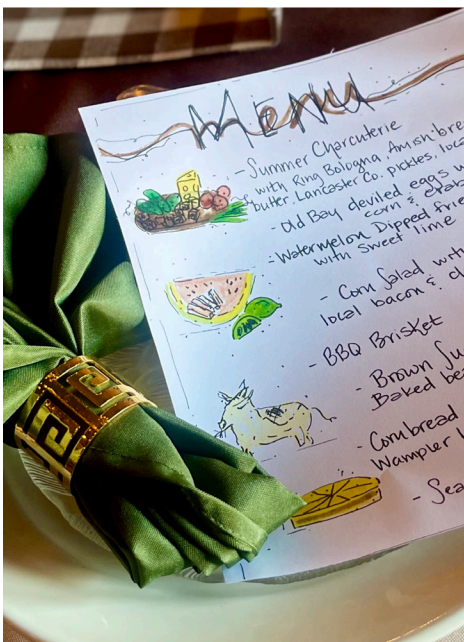 Menu
- Summer Charcuterie
with Ring Bologna, Amish
butter, Lancaster Co. pickles,
- Old Bay deviled eggs
corn &
- Watermelon Dipped
with sweet lime
- Corn Salad with
local bacon &
- BBQ Brisket
- Brown
Baked
- Cornbread
Wampler
-